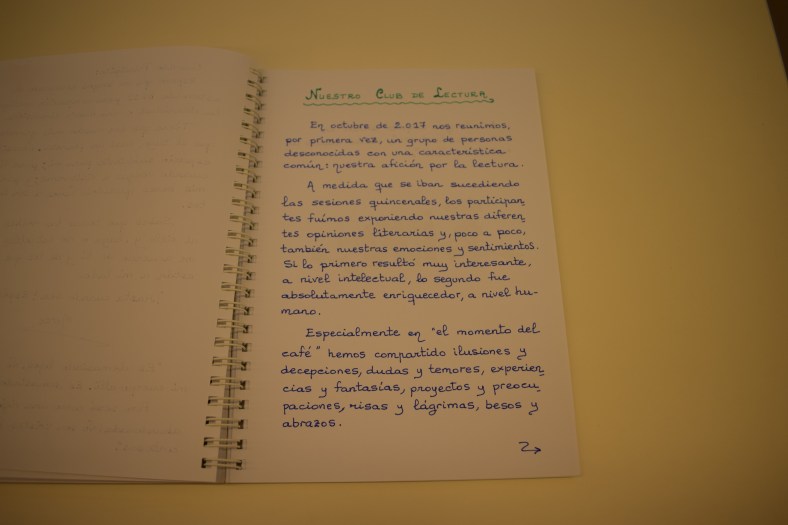 Nuestro Club de Lectura
En octubre de 2.017 nos reunimos,
por primera vez, un grupo de personas
desconocidas con una característica
común: nuestra afición por la lectura.
A medida que se iban sucediendo
las sesiones quincenales, los participan
tes fuímos exponiendo nuestras diferen
tes opiniones literarias y, poco a poco,
también nuestras emociones y sentimientos.
Si lo primero resultó muy interesante,
a nivel intelectual, lo segundo fue
absolutamente enriquecedor, a nivel hu-
mano.
Especialmente en "el momento del
café" hemos compartido ilusiones y
decepciones, dudas y temores, experien
cias y fantasías, proyectos y preocu
paciones, risas y lágrimas, besos y
abrazos.